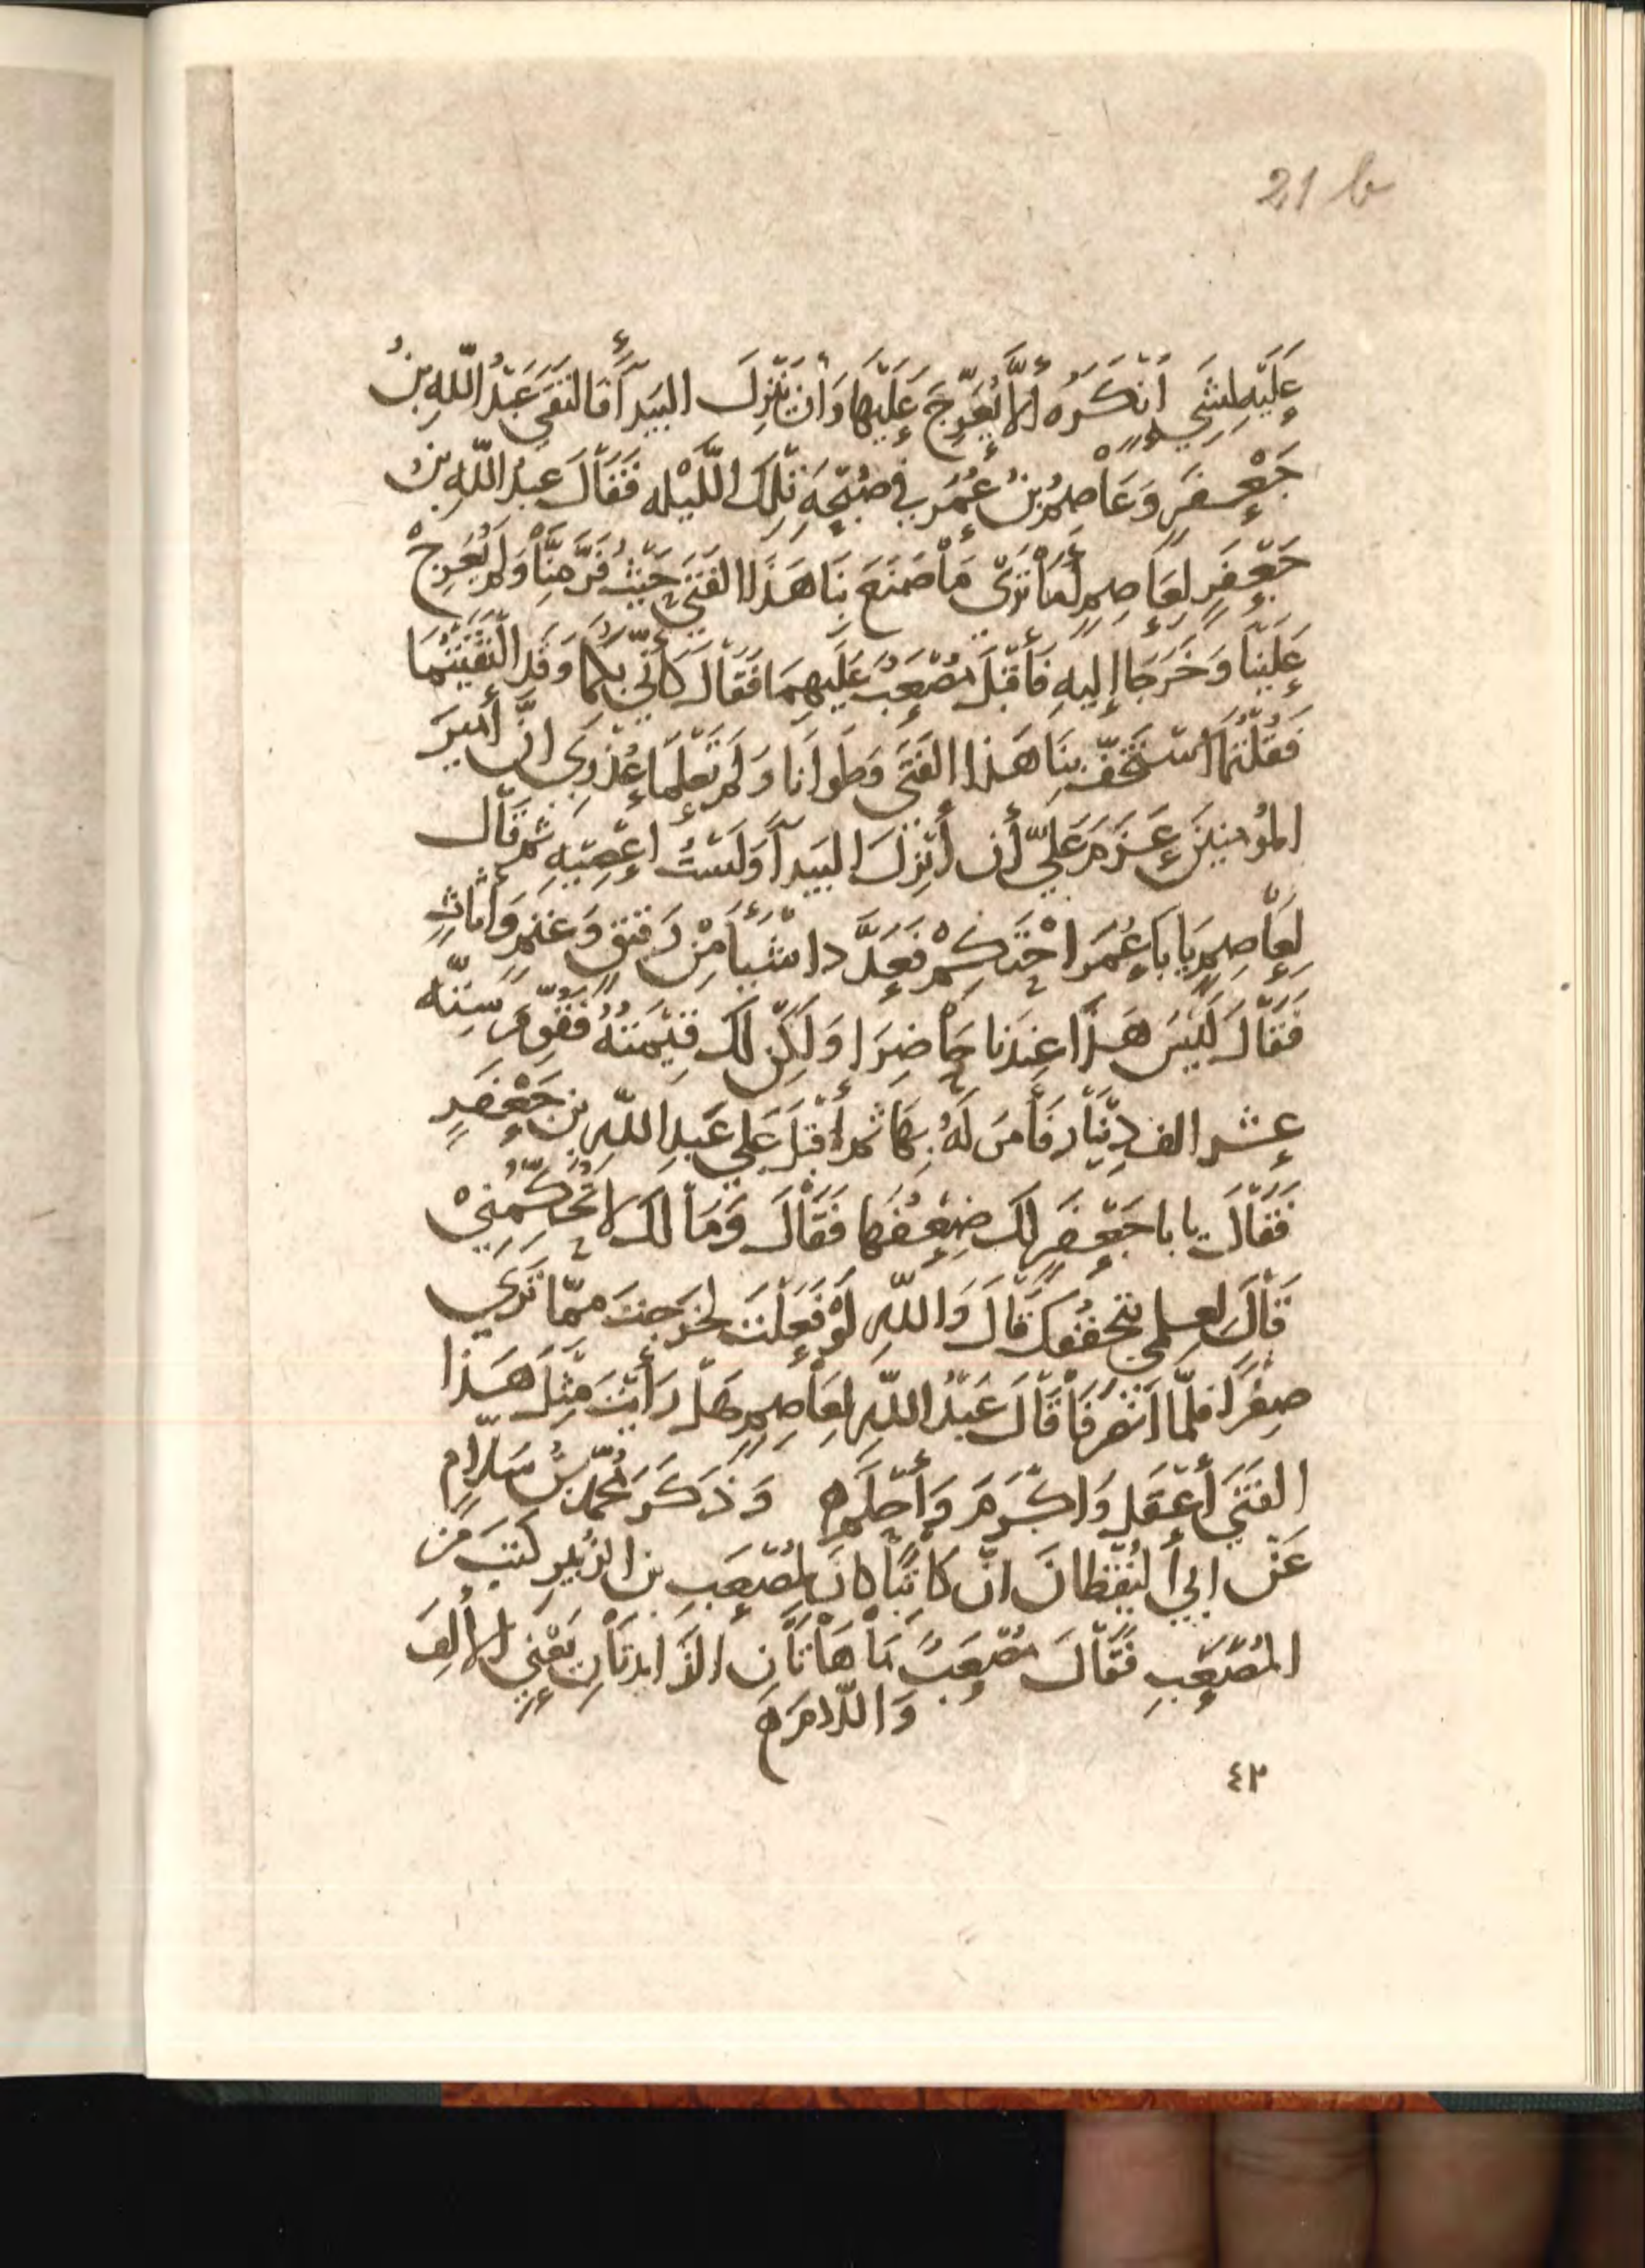 21 b
عَلَيْهِ لِشَيءٍ أنْكَرَهُ ألَّا يُعَرِّجَ عَلَيْهَا وَأن يَنْزِلَ البَيدَآءَ فَالتَقَى عَبْدُ اللّهِ بنُ
جَعْفَرٍ وَعَاصِمُ بنُ عُمَرَ في صُبْحَةِ تِلكَ اللَّيْلَه فَقَالَ عبدُ اللّهِ بنُ
جَعْفَرٍ لِعَاصِمٍ أَمَا تَرَى مَا صَنَعَ بِنَا هَذَا الفَتَى حَيثُ مَرَّ مِنَّا وَلَم يُعَرِّجْ
عَلَيْنَا وَخَرَجَا إليهِ فَأَقْبَلَ مُصْعَبٌ عَلَيهِمَا فَقَالَ كَأنّي بِكُمَا وَقَد التَقَيْتُمَا
فَقُلتُمَا اسْتَخَفَّ بِنَا هَذا الفَتَى وَطَوَانَا وَلَم تَعلَمَا عُذْرِي إنَّ أمِيرَ
المُؤمِنِينَ عَزَمَ عَلَيَّ أن أنْزِلَ البَيدَآءَ وَلَسْتُ اعْصِيهِ ثم قَال
لِعَاصِمٍ يَا بَا عُمَرَ احْتَكِمْ فَعَدَّ دا شَيْأً مِنْ رَقيقٍ وَغَنَمٍ وَأثَاثٍ
فَقَالَ لَيْسَ هَذَا عِندَنا حَاضِرَا وَلَكِن لَكَ قِيْمَتُهُ فَقُوِّمَ سِتّه
عشر الف دِيْنَار فَأَمَرَ لَهُ بِهَا ثم أقْبَلَ عَلي عَبدِ اللّهِ بن جَعْفَرٍ
فَقَالَ يا با جَعْفَرٍ لَكَ ضِعْفُهَا فَقَالَ وَمَا لَكَ لا تُحَكِّمُنِيْ
قَالَ لعِلمِي بتَحَفُّفِكَ قَالَ وَاللّهِ لَوْ فَعَلتَ لخَرَجتَ مِمّا تَرَى
صِفْرًا فلَمّا انْصَرَفَا قَالَ عَبْدُ اللّهِ لِعَاصِمٍ هَل رَأيْتَ مِثْلَ هَذا
الفَتَى أعْقَل وَاكْرَمَ وَأحْلَم ه وَذَكَرَ مُحَمَّد بنُ سَلّامٍ
عَنْ ابي ألْيَقْظَانَ انّ كَاتِبًا كانَ لِمُصْعَبِ بن الزُّبَيرِ كَتَبَ مِنَ
المُصْعَبِ فَقَالَ مُصْعَبٌ مَا هَاتَانِ الزَّايِدَتَانِ يَعْنِي الألِفَ
وَاللّامَ ه
٤٢